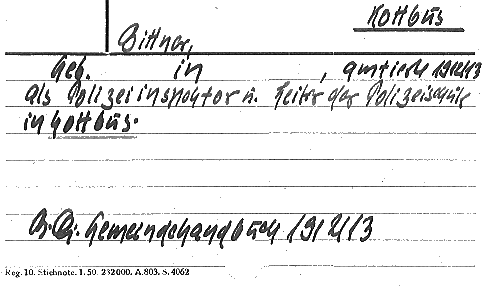 Kottbus
Bittner,
geb. in , amtierte 1912/13
als Polizeiinspektor u. Leiter der Polizeischule
in Kottbus.
B.Qu. Gemeindehandbuch 1912/13
Reg. 10. Stichnote. I. 50. 232000. A.803. S. 4062